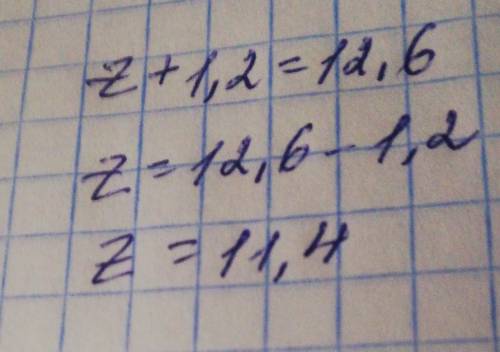 z + 1,2 = 12,6
z = 12,6 - 1,2
z = 11,4